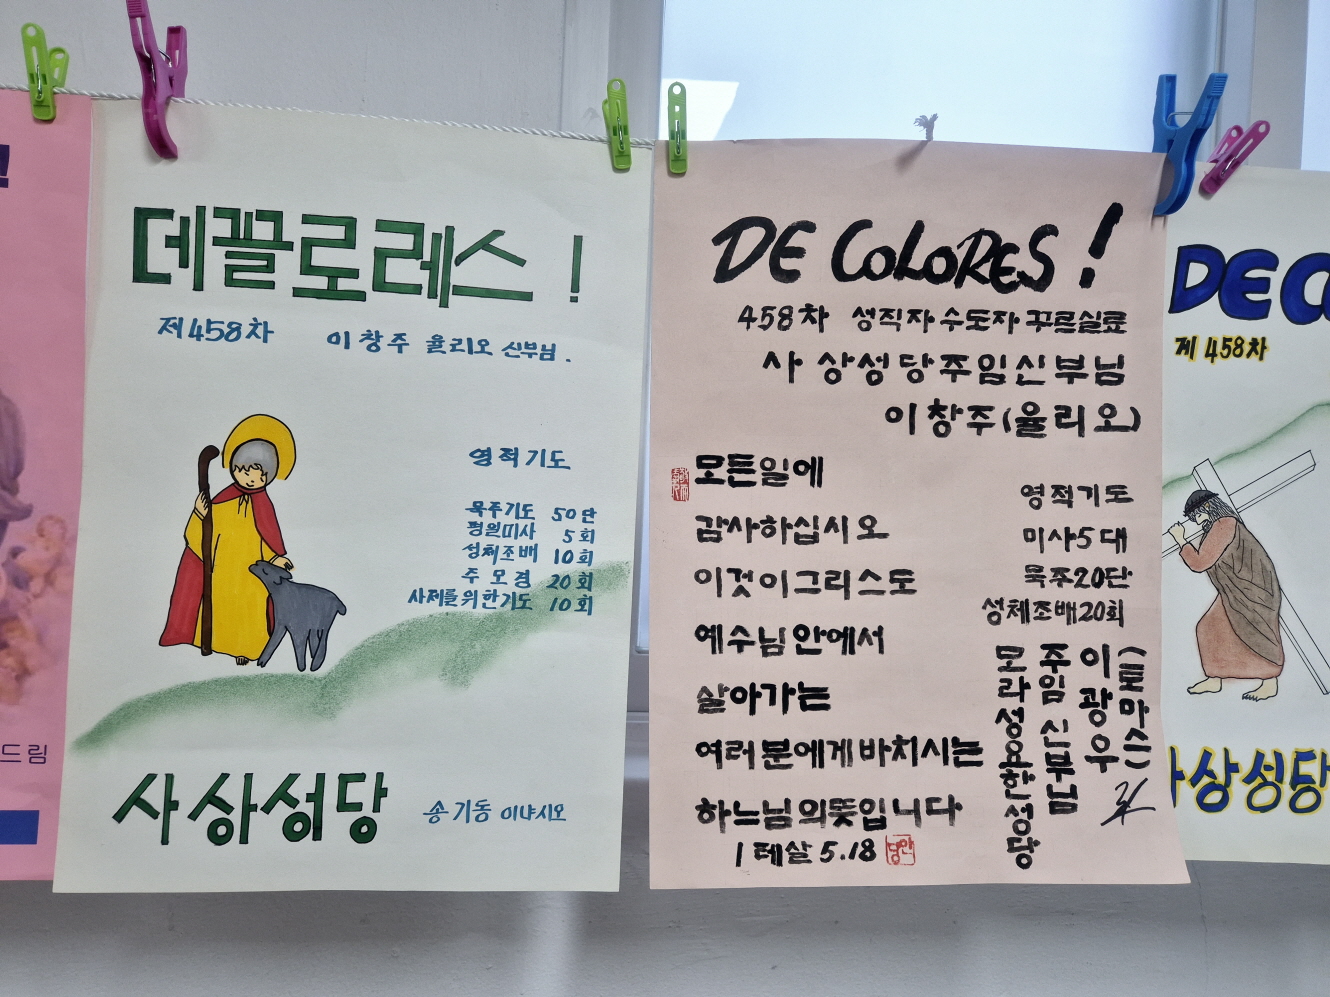 드림
데꼴로레스!
제458차 이창주 율리오 신부님.
영적기도
묵주기도 50단
평일미사 5회
성체조배 10회
주모경 20회
사제를위한기도 10회
사상성당
송기동 이냐시오
DE COLORES!
458차 성직자수도자꾸르실료
사상성당주임신부님
이창주(율리오)
모든일에
감사하십시오
이것이그리스도
예수님안에서
살아가는
여러분에게바치시는
하느님의뜻입니다
1테살 5.18
영적기도
미사5대
묵주20단
성체조배20회
모라성요한성당
주임신부님
이광우
(토마스)
DE CO
제 458차
사상성당